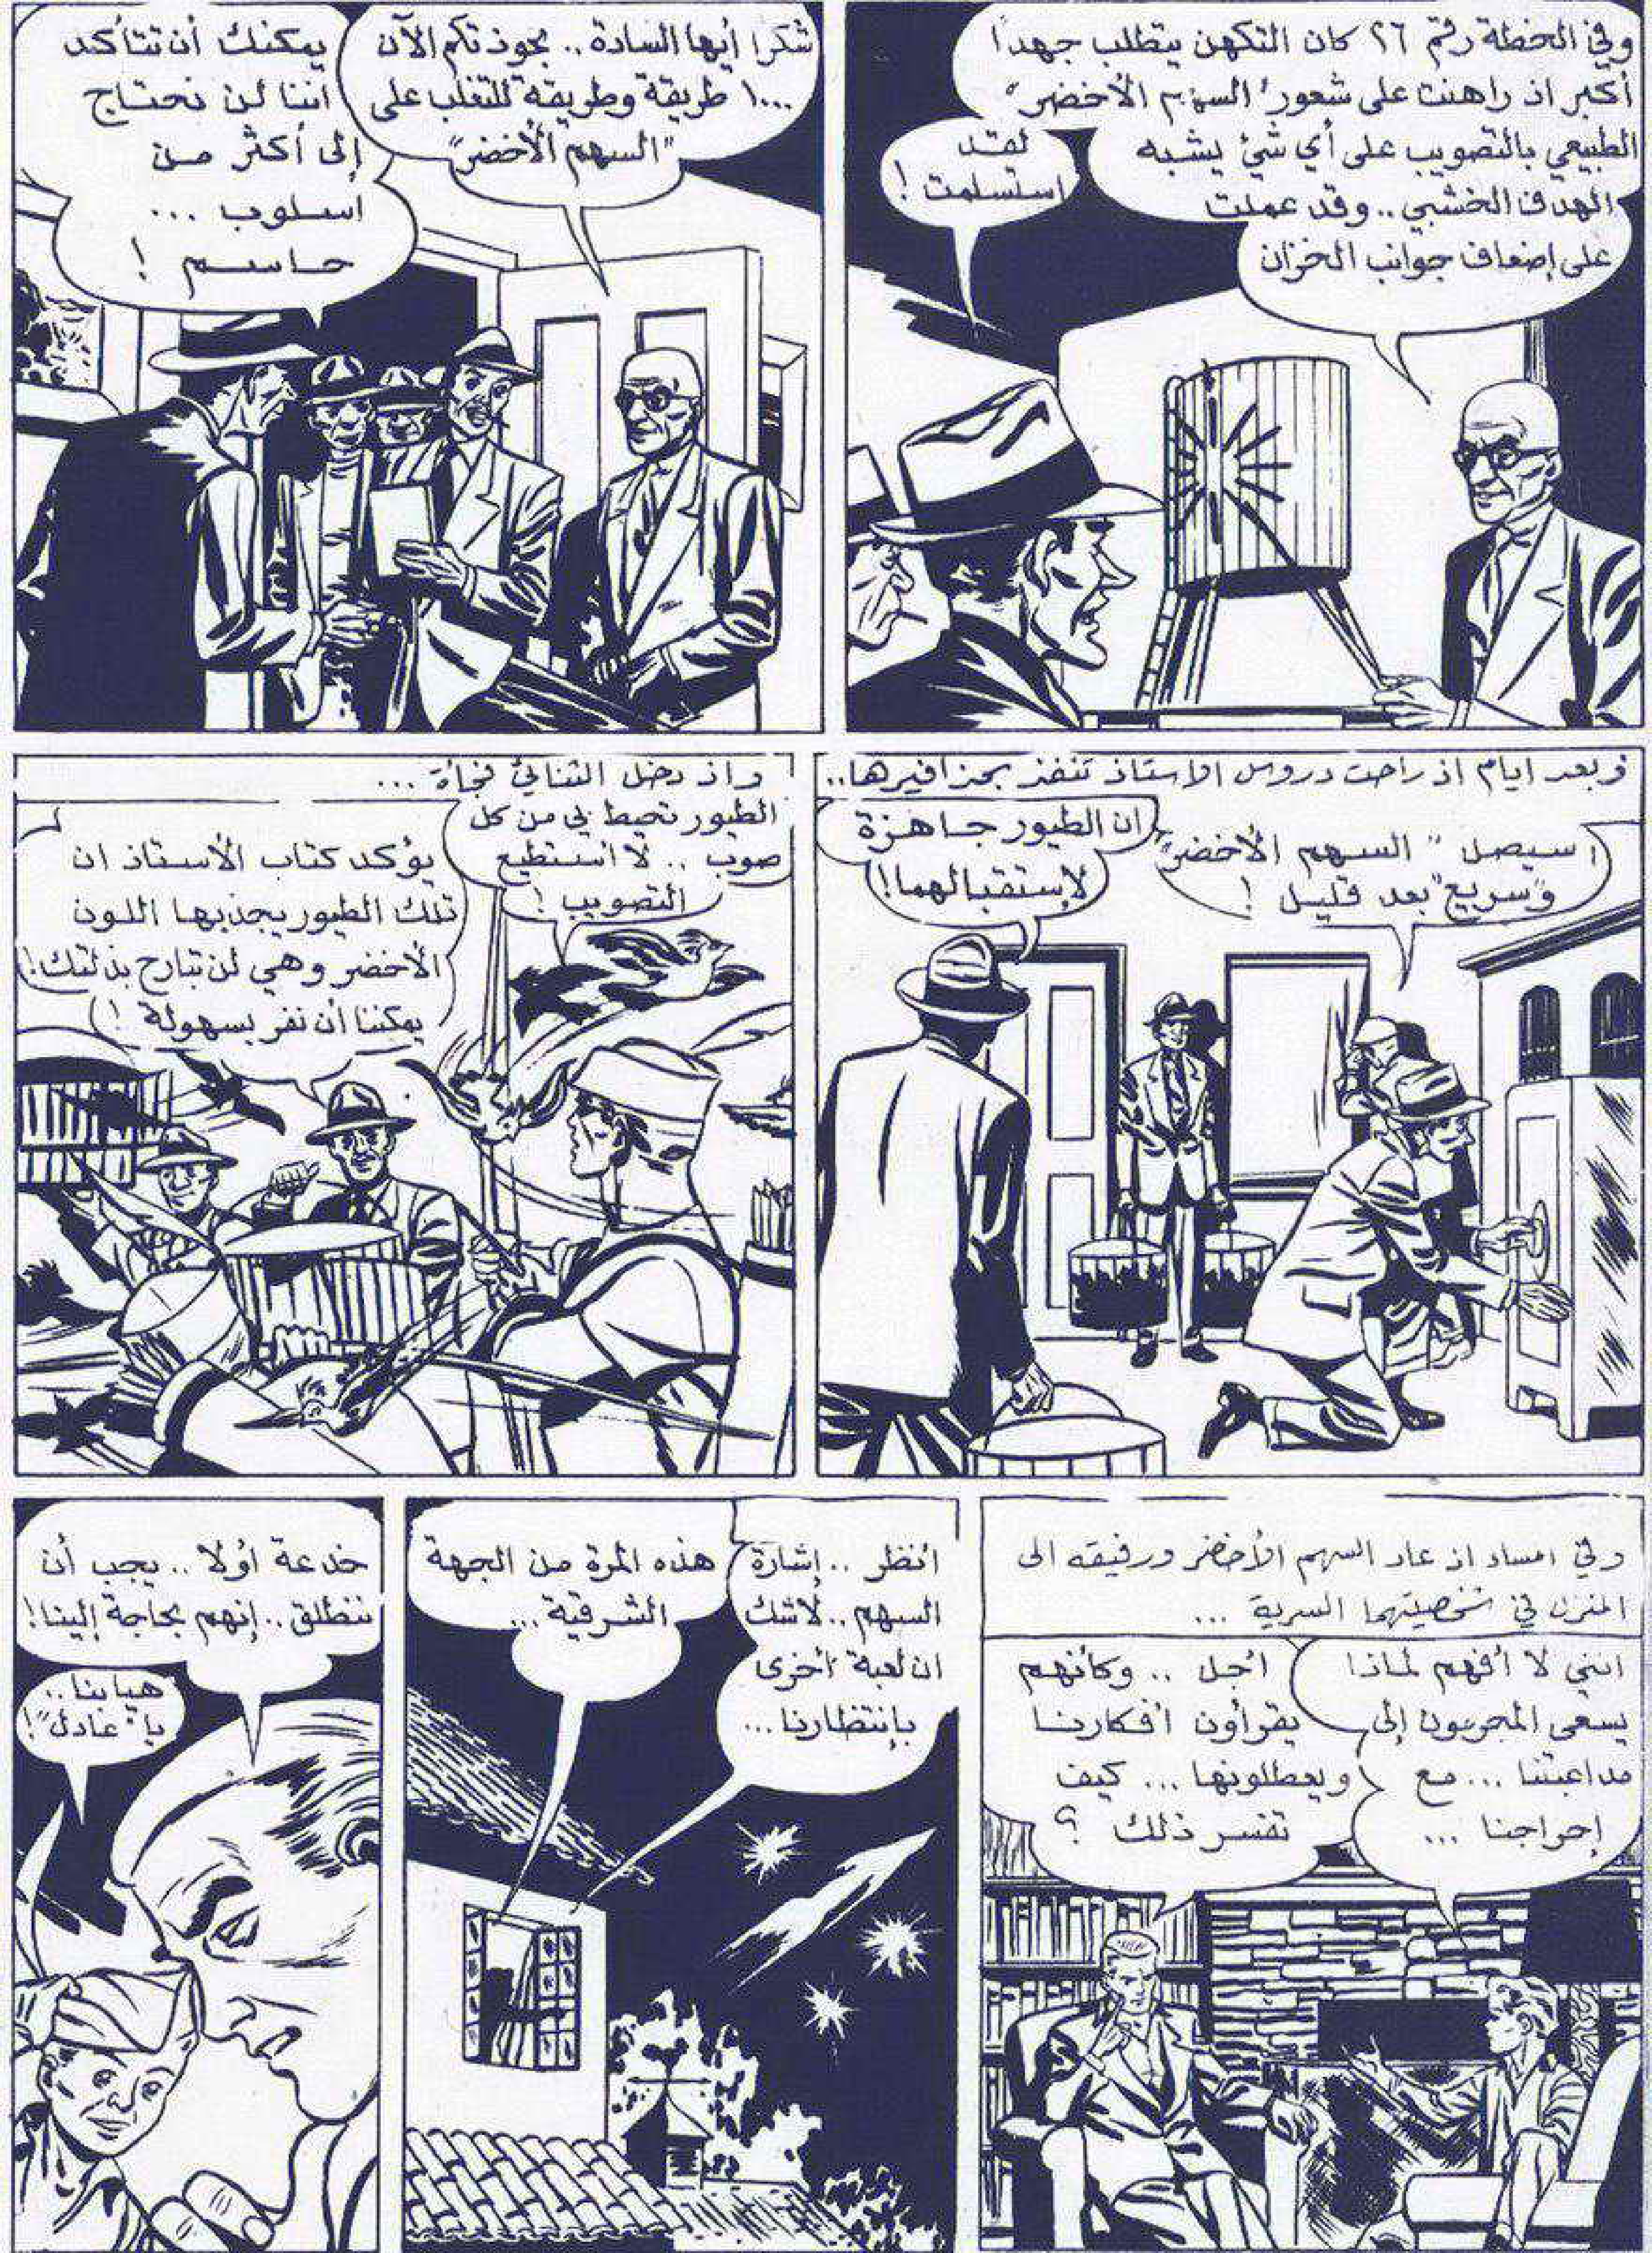 وفي الخطة رقم ٢٦ كان التكهن يتطلب جهداً
أكبر اذ راهنت على شعور "السهم الأخضر"
الطبيعي بالتصويب على أي شئ يشبه
الهدف الخشبي.. وقد عملت
على إضعاف جوانب الخزان
لقد
استسلمت!
شكرا أيها السادة.. بحوذتكم الآن
١٠٠٠ طريقة وطريقة للتغلب على
"السهم الأخضر"
يمكنك أن تتأكد
اننا لن نحتاج
إلى أكثر من
اسلوب ...
حاسم !
وبعد ايام اذ راحت دروس الاستاذ تنفذ بحذافيرها..
سيصل "السهم الأخضر"
و"سريع" بعد قليل !
ان الطيور جاهزة
لإستقبالهما!
واذ دخل الثنائي فجأة ...
الطيور تحيط بي من كل
صوب .. لا استطيع
التصويب !
يؤكد كتاب الأستاذ ان
تلك الطيور يجذبها اللون
الأخضر وهي لن تبارح بذلتك!
يمكننا أن نفر بسهولة !
وفي امساد اذ عاد السهم الأخضر ورفيقه الى
المنزل في شخصيتهما السرية ...
انني لا أفهم لماذا
يسعى المجرمون إلى
مداعبتنا ... مع
إحراجنا ...
أجل .. وكأنهم
يقرأون أفكارنا
ويعطلونها ... كيف
تفسر ذلك ؟
انظر .. إشارة
السهم .. لاشك
ان لعبة أخرى
بإنتظارنا ...
هذه المرة من الجهة
الشرقية ...
خدعة أولا .. يجب أن
ننطلق .. إنهم بحاجة إلينا!
هيا بنا ..
يا "عادل"!